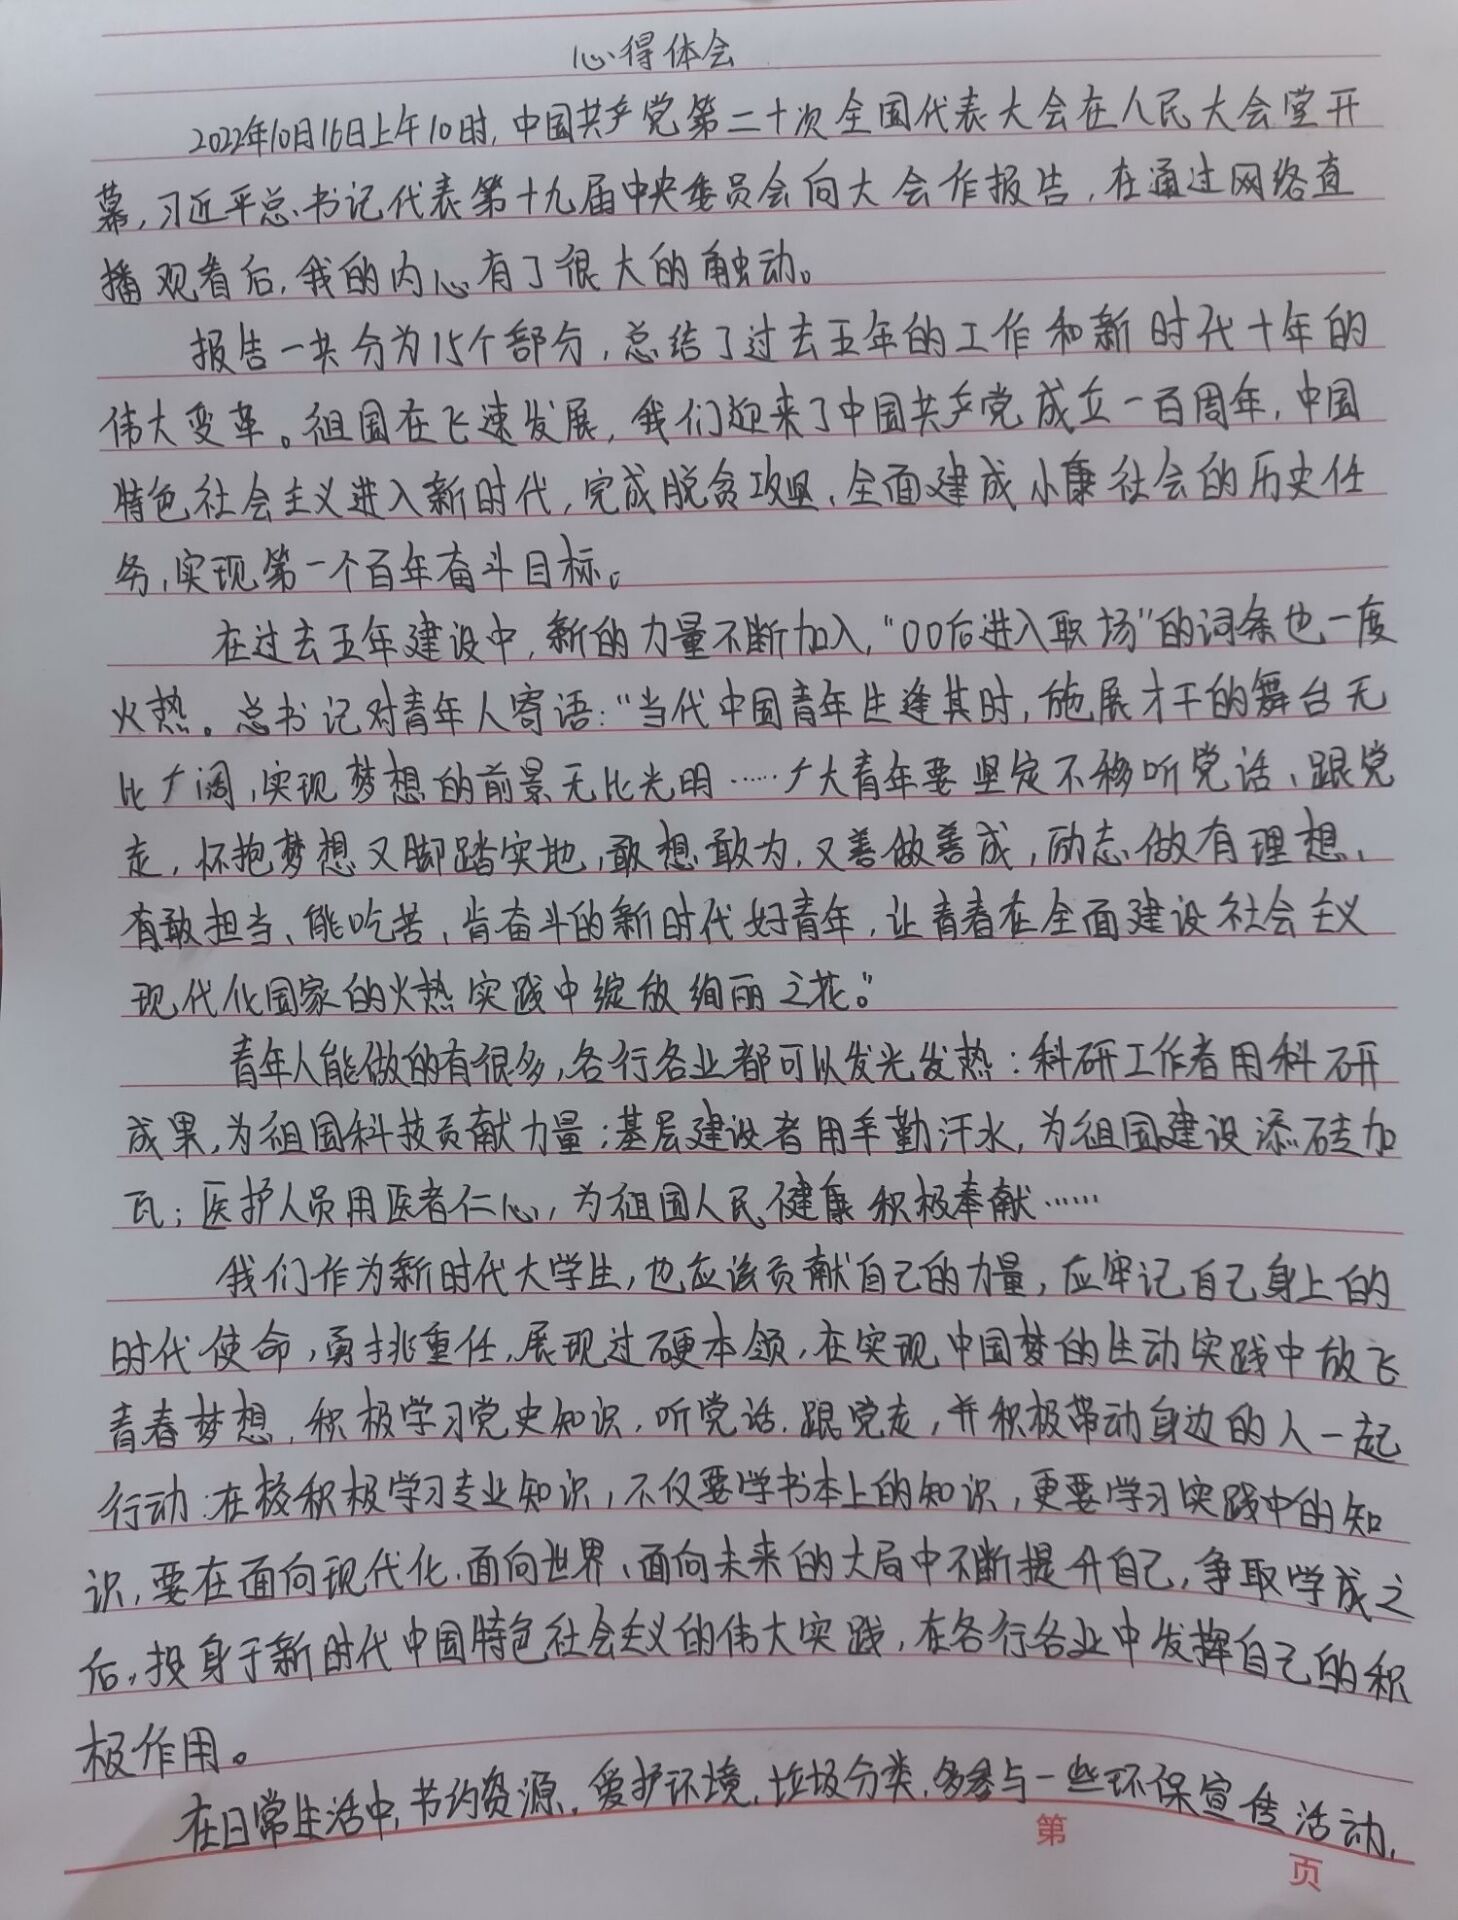 心得体会
2022年10月16日上午10时,中国共产党第二十次全国代表大会在人民大会堂开
幕,习近平总书记代表第十九届中央委员会向大会作报告,在通过网络直
播观看后,我的内心有了很大的触动。
报告一共分为15个部分,总结了过去五年的工作和新时代十年的
伟大变革。祖国在飞速发展,我们迎来了中国共产党成立一百周年,中国
特色社会主义进入新时代,完成脱贫攻坚、全面建成小康社会的历史任
务,实现第一个百年奋斗目标。
在过去五年建设中,新的力量不断加入,“00后进入职场”的词条也一度
火热。总书记对青年人寄语:“当代中国青年生逢其时,施展才干的舞台无
比广阔,实现梦想的前景无比光明……广大青年要坚定不移听党话、跟党
走,怀抱梦想又脚踏实地,敢想敢为,又善做善成,励志做有理想、
有敢担当、能吃苦、肯奋斗的新时代好青年,让青春在全面建设社会主义
现代化国家的火热实践中绽放绚丽之花。”
青年人能做的有很多,各行各业都可以发光发热:科研工作者用科研
成果,为祖国科技贡献力量;基层建设者用辛勤汗水,为祖国建设添砖加
瓦;医护人员用医者仁心,为祖国人民健康积极奉献……
我们作为新时代大学生,也应该贡献自己的力量,应牢记自己身上的
时代使命,勇挑重任,展现过硬本领,在实现中国梦的生动实践中放飞
青春梦想,积极学习党史知识,听党话、跟党走,并积极带动身边的人一起
行动:在校积极学习专业知识,不仅要学书本上的知识,更要学习实践中的知
识,要在面向现代化、面向世界、面向未来的大局中不断提升自己,争取学成之
后,投身于新时代中国特色社会主义的伟大实践,在各行各业中发挥自己的积
极作用。
在日常生活中,节约资源,爱护环境,垃圾分类,多参与一些环保宣传活动,
第 页